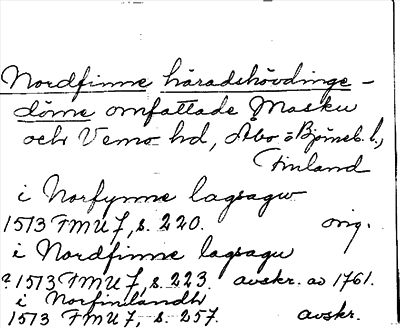 Nordfinne häradshövdinge-
döme omfattade Masku
och Vemo hd, Åbo o Björneb. l.,
Finland
i Norfynne lagsagu
1513 FMU 7, s. 220. orig.
i Nordfinne lagsagu
? 1513 FMU 7, s. 223. avskr. av 1761.
i Norfinlandh
1513 FMU 7, s. 257. avskr.